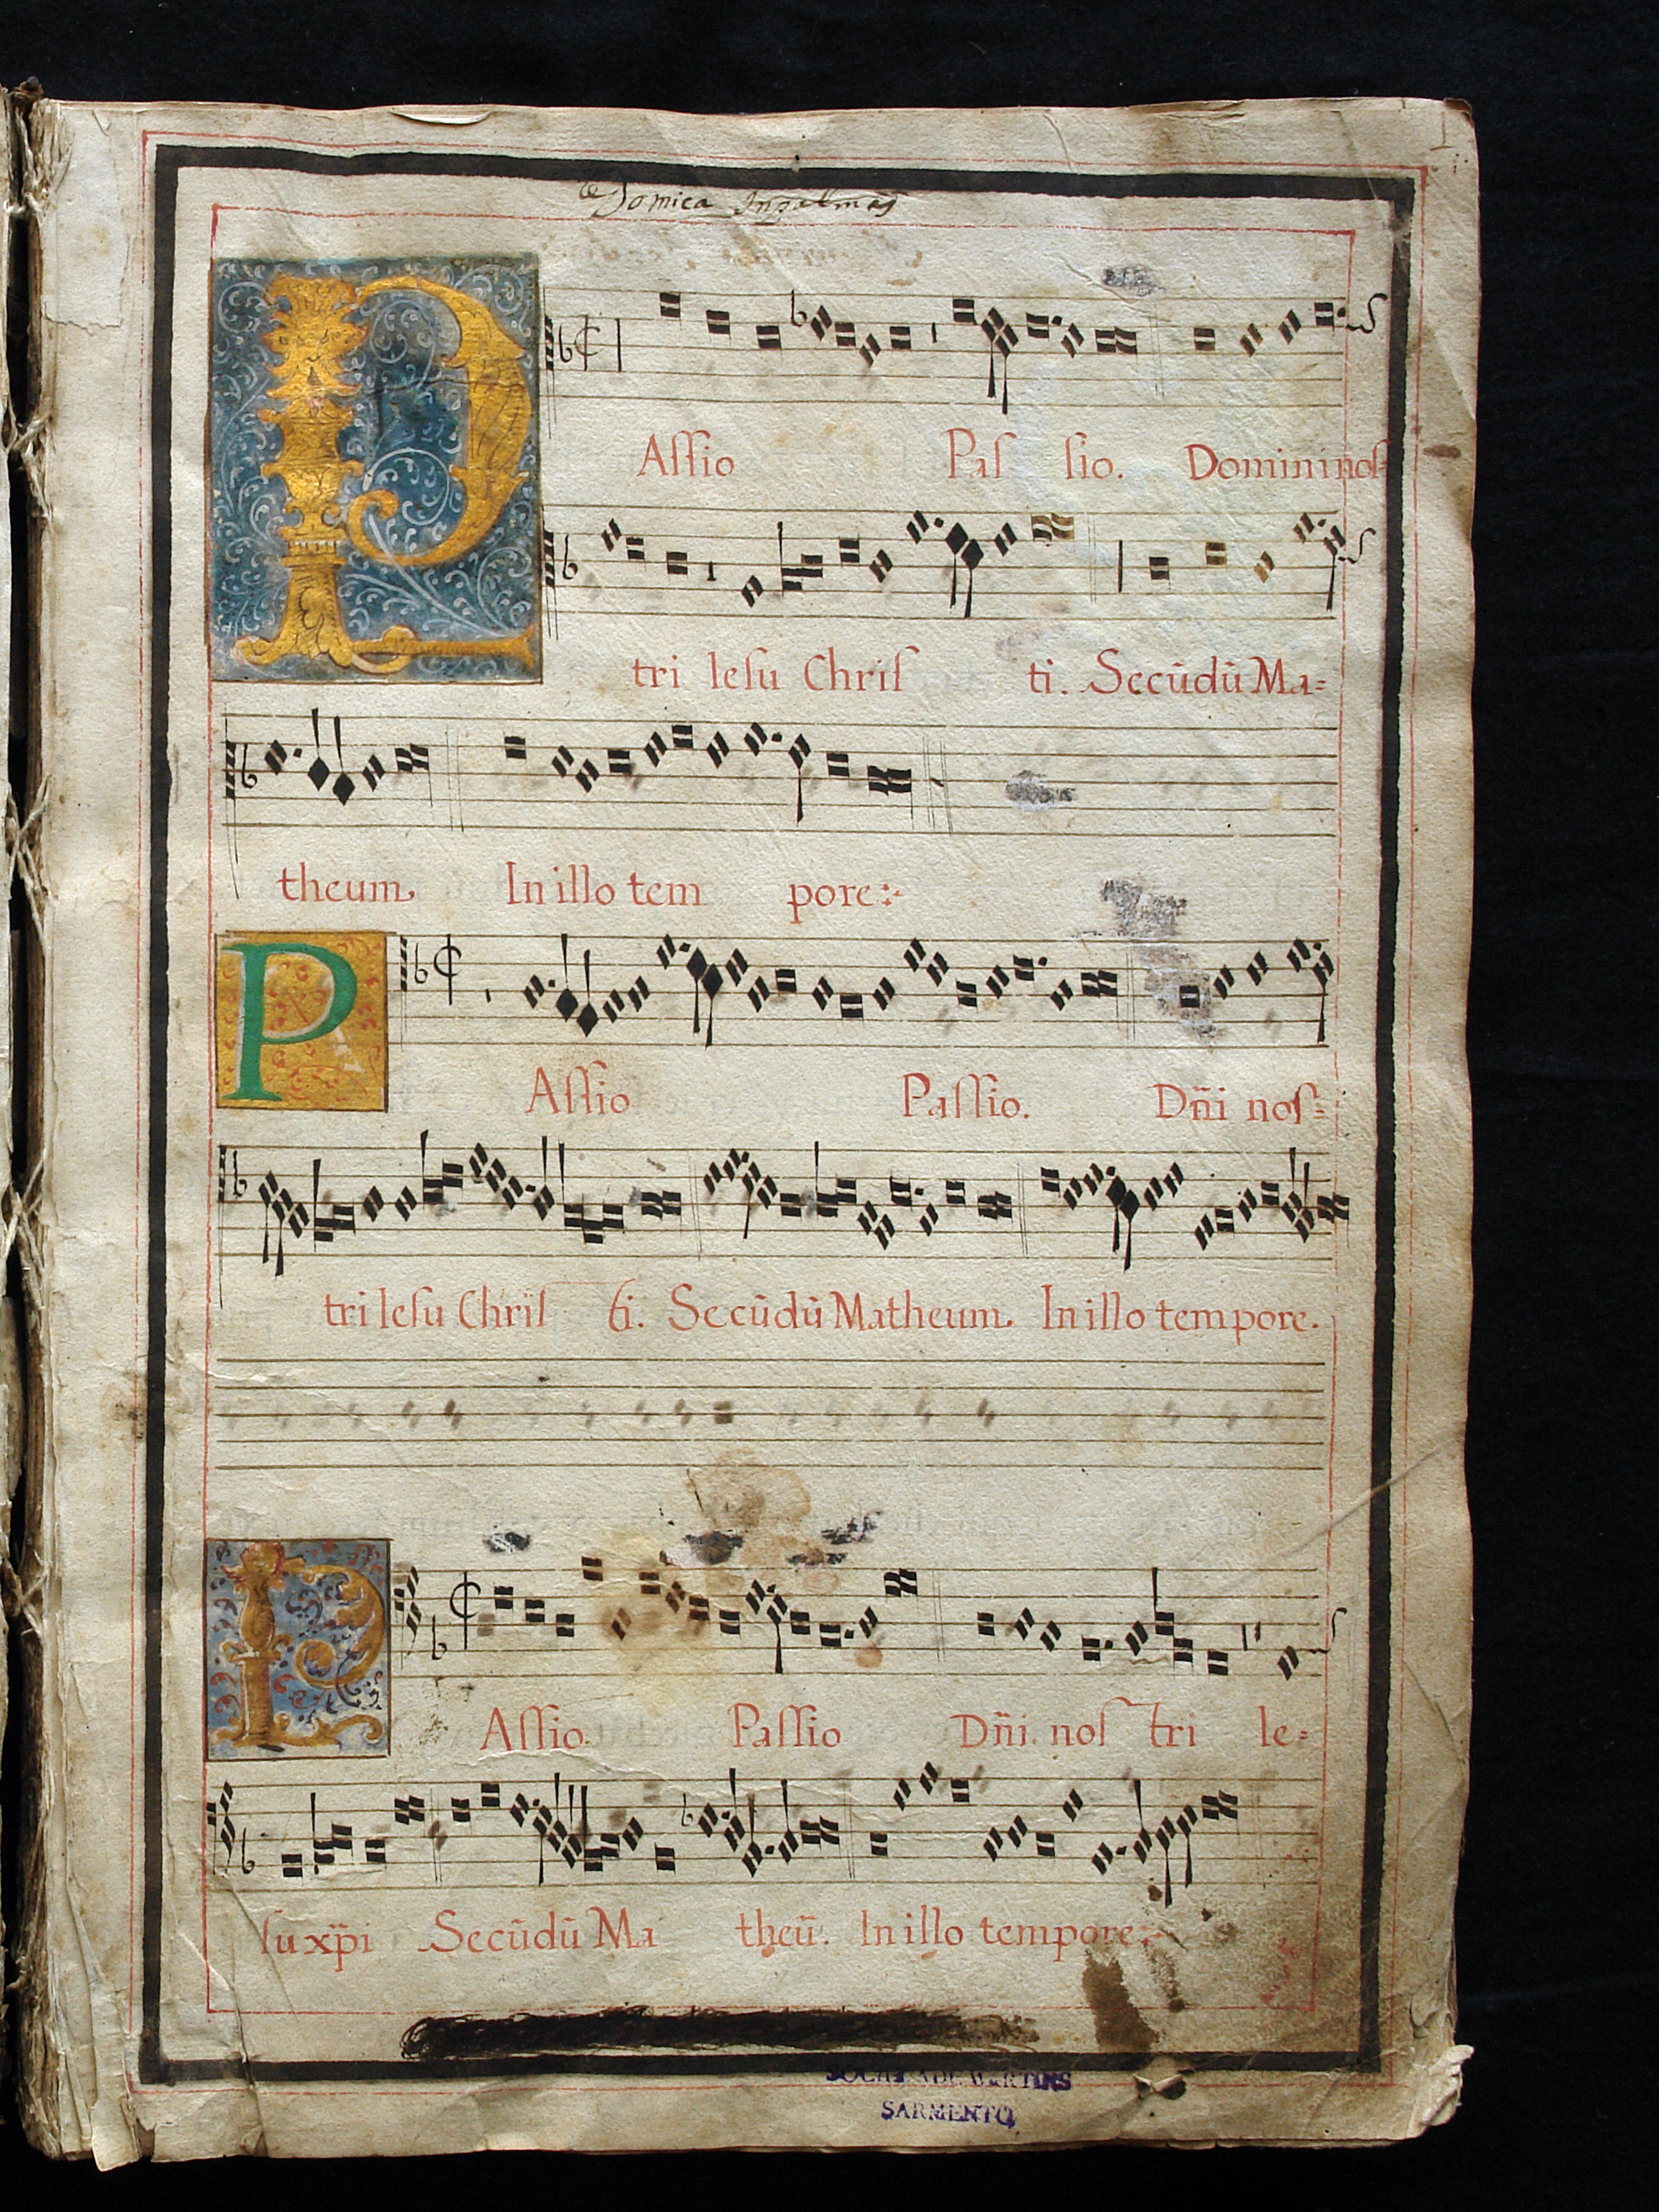 1
Domica Inpalmas
P
Aſſio Paſ ſio. Domini noſ=
tri Ieſu Chriſ ti. Secūdū Ma=
theum In illo tem pore:
P
Aſſio Paſſio. Dn̄i noſ=
tri Ieſu Chriſ ti. Secūdū Matheum In illo tempore.
P
Aſſio Paſſio Dn̄i noſ tri Ie=
ſu xp̄i Secūdū Ma theū. In illo tempore:
SOCIEDADE MARTINS
SARMENTO